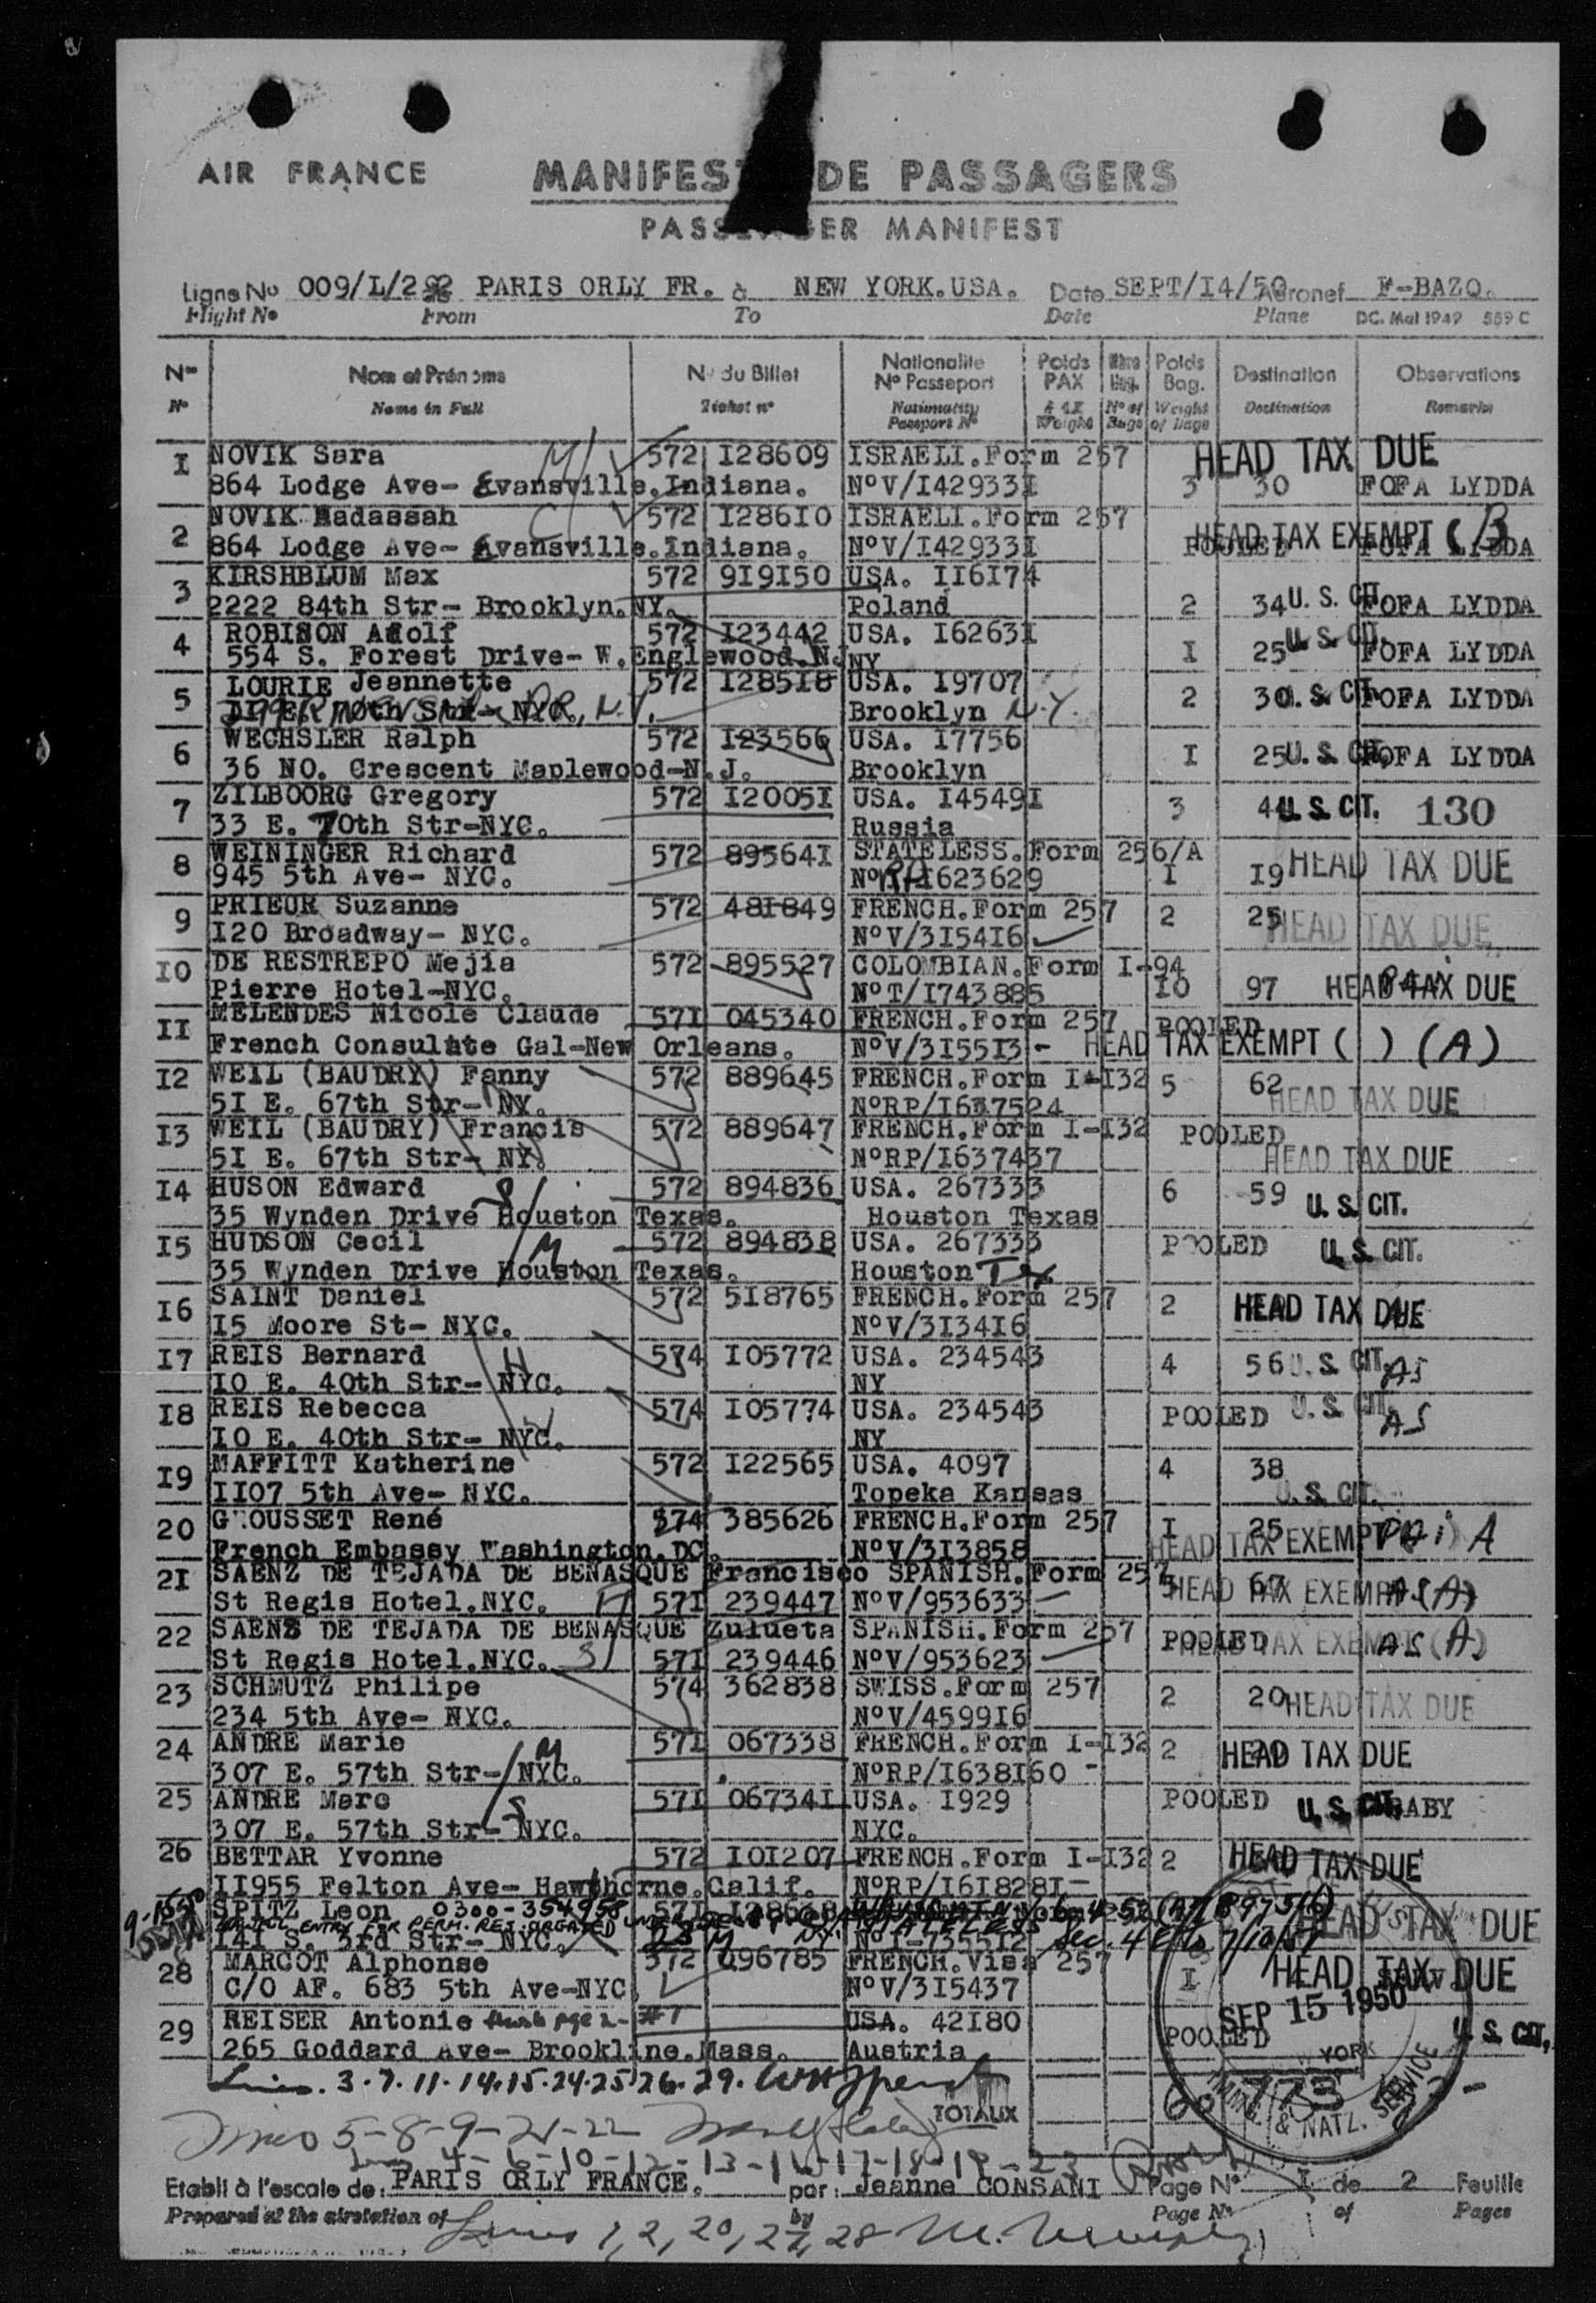 AIR FRANCE
MANIFES DE PASSAGERS
PASS GER MANIFEST
Ligne No 009/L/2 PARIS ORLY FR. à NEW YORK.USA. Date SEPT/I4/50 Aéronef F-BAZO.
Flight No From To Date Plane DC. Mai 1949 559 C
No Nom et Prénoms No du Billet Nationalité No Passeport Poids PAX Poids Bag. Destination Observations
No Name in Full Ticket no Nationality Passport No Weight No of Bags Weight of Bags Destination Remarks
I NOVIK Sara M 572 I28609 ISRAELI.Form 257 HEAD TAX DUE
864 Lodge Ave- Evansville.Indiana. NoV/I42933I 3 30 FOFA LYDDA
2 NOVIK Hadassah 572 I286I0 ISRAELI.Form 257
864 Lodge Ave- Evansville.Indiana. NoV/I42933I POOLED HEAD TAX EXEMPT (B FOFA LYDDA
3 KIRSHBLUM Max 572 9I9I50 USA. II6I74
2222 84th Str- Brooklyn.NY. Poland 2 34 U. S. CIT. FOFA LYDDA
4 ROBISON Adolf 572 I23442 USA. I6263I
554 S. Forest Drive- W.Englewood.NJ NY I 25 U. S. CIT. FOFA LYDDA
5 LOURIE Jeannette 572 I285I8 USA. I9707
N.Y. Brooklyn N.Y. 2 30 U. S. CIT. FOFA LYDDA
6 WECHSLER Ralph 572 I23566 USA. I7756
36 NO. Crescent Maplewood-N.J. Brooklyn I 25 U. S. CIT. FOFA LYDDA
7 ZILBOORG Gregory 572 I2005I USA. I4549I
33 E. 70th Str-NYC. Russia 3 44 U. S. CIT. 130
8 WEININGER Richard 572 89564I STATELESS.Form 256/A
945 5th Ave- NYC. I I9 HEAD TAX DUE
9 PRIEUR Suzanne 572 48I849 FRENCH.Form 257 2 25 HEAD TAX DUE
I20 Broadway- NYC. NoV/3I54I6
I0 DE RESTREPO Mejia 572 895527 COLOMBIAN.Form I-94
Pierre Hotel-NYC. NoT/I743885 I0 97 HEAD TAX DUE
II MELENDES Nicole Claude 57I 045340 FRENCH.Form 257 POOLED
French Consulate Gal-New Orleans. NoV/3I55I3 - HEAD TAX EXEMPT ( ) (A)
I2 WEIL (BAUDRY) Fanny 572 889645 FRENCH.Form I-I32 5 62
5I E. 67th Str- NY. NoRP/I637524 HEAD TAX DUE
I3 WEIL (BAUDRY) Francis 572 889647 FRENCH.Form I-I32 POOLED
5I E. 67th Str- NY. NoRP/I637437 HEAD TAX DUE
I4 HUSON Edward 572 894836 USA. 267333 6 59 U. S. CIT.
35 Wynden Drive Houston Texas. Houston Texas
I5 HUDSON Cecil M 572 894838 USA. 267333 POOLED U. S. CIT.
35 Wynden Drive Houston Texas. Houston Tex
I6 SAINT Daniel 572 5I8765 FRENCH.Form 257 2 HEAD TAX DUE
I5 Moore St- NYC. NoV/3I34I6
I7 REIS Bernard 574 I05772 USA. 234543 4 56 U. S. CIT. AS
I0 E. 40th Str- NYC. NY
I8 REIS Rebecca 574 I05774 USA. 234543 POOLED U. S. CIT. AS
I0 E. 40th Str- NYC. NY
I9 MAFFITT Katherine 572 I22565 USA. 4097 4 38
II07 5th Ave- NYC. Topeka Kansas U. S. CIT.
20 G OUSSET René 574 385626 FRENCH.Form 257 I 25
French Embassy Washington.DC. NoV/3I3858 HEAD TAX EXEMPT A
2I SAENZ DE TEJADA DE BENASQUE Francisco SPANISH.Form 257
St Regis Hotel.NYC. 57I 239447 NoV/953633 67 HEAD TAX EXEMPT (A)
22 SAENS DE TEJADA DE BENASQUE Zulueta SPANISH.Form 257 POOLED HEAD TAX EXEMPT AS (A)
St Regis Hotel.NYC. 57I 239446 NoV/953623
23 SCHMUTZ Philipe 574 362838 SWISS.Form 257 2 20 HEAD TAX DUE
234 5th Ave- NYC. NoV/4599I6
24 ANDRE Marie M 57I 067338 FRENCH.Form I-I32 2 HEAD TAX DUE
307 E. 57th Str- NYC. NoRP/I638I60 -
25 ANDRE Marc S 57I 06734I USA. I929 POOLED U. S. CIT. BABY
307 E. 57th Str- NYC. NYC.
26 BETTAR Yvonne 572 I0I207 FRENCH.Form I-I32 2 HEAD TAX DUE
II955 Felton Ave- Hawthorne.Calif. NoRP/I6I828I-
SPITZ Leon 0300-354958 57I HEAD TAX DUE
I4I S. 3rd Str- NYC. NoI-7355I2
28 MARCOT Alphonse 572 096785 FRENCH.Visa 257 I HEAD TAX DUE
C/O AF. 683 5th Ave-NYC NoV/3I5437 SEP 15 1950
29 REISER Antonie USA. 42I80 POOLED U. S. CIT.
265 Goddard Ave- Brookline.Mass. Austria YORK
Lines. 3.7.11.14.15.24.25.26.29. 60 773
IMMIG. & NATZ. SERVICE
TOTAUX
Lines 5-8-9-21-22
Lines 4-6-10-12-13-16-17-18-19-23
Etabli à l'escale de: PARIS ORLY FRANCE. par: Jeanne CONSANI Page No I de 2 Feuille
Prepared at the airstation of by Page No of Pages
Lines 1, 2, 20, 27, 28